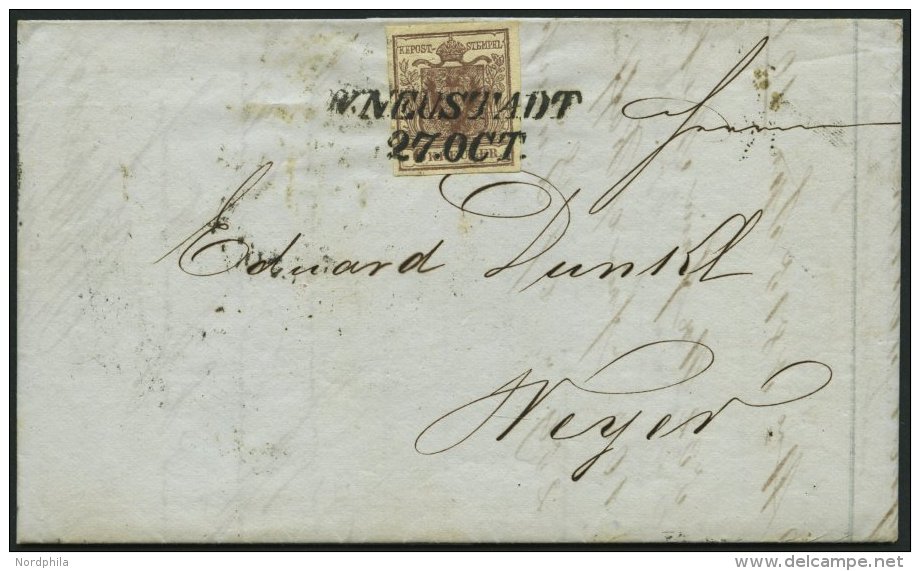 KKPOST-STEMPEL
W.NEUSTADT
27.OCT.
Herrn
Eduard Dunkl
Weyer
Nordphila
delcampe.net